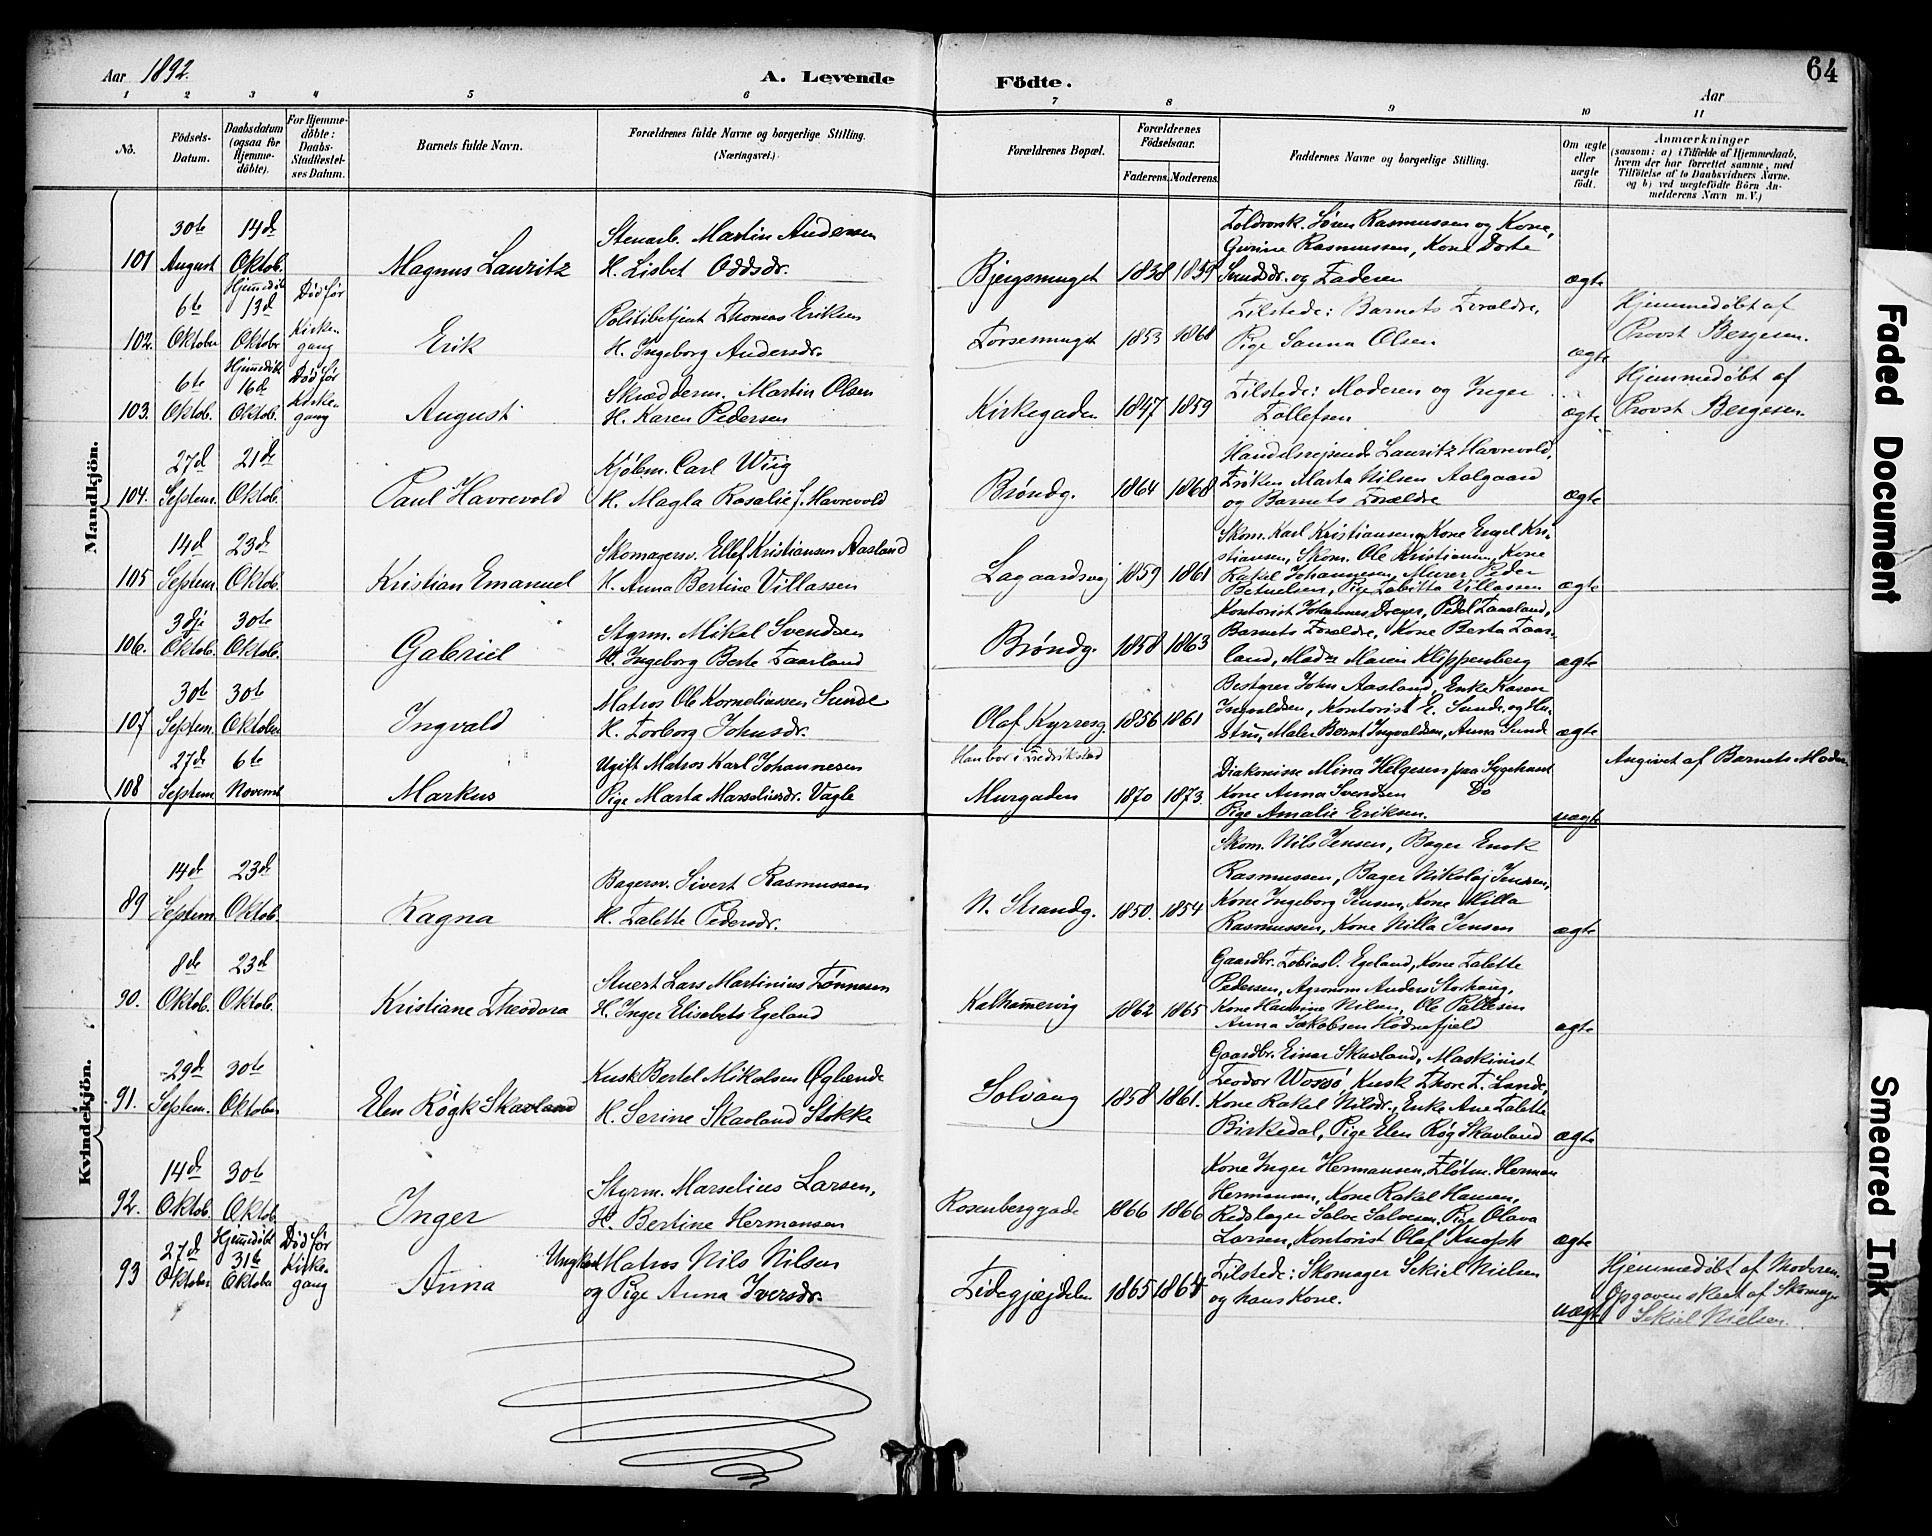 64
Aar 1892. A. Levende Födte. Aar
1 2 3 4 5 6 7 8 9 10 11
No. Födsels-Datum. Daabsdatum (ogsaa for Hjemmedöbte). For Hjemmedöbte: Daabs-Stadfæstelses Datum. Barnets fulde Navn. Forældrenes fulde Navne og borgerlige Stilling. (Næringsvei.) Forældrenes Bopæl. Forældrenes Födselsaar. Faderens. Moderens. Faddernes Navne og borgerlige Stilling. Om ægte eller uægte födt. Anmærkninger (saasom: a) i Tilfælde af Hjemmedaab, hvem der har forrettet samme, med Tilföielse af to Daabsvidners Navne, og b) ved uægtefödte Börn Anmelderens Navn m. V.)
Mandkjön.
101 30te August 14de Oktob. Magnus Lauritz
Stenarb. Martin Andersen
H. Lisbet Oddsdr.
Bjergsmuget 1838 1839
Toldrorsk. Søren Rasmussen og Kone,
Gurine Rasmussen, Kone Dorte
Svendsdr. og Faderen
ægte
102. 6te Oktober Hjemmedöbt 13d Oktobr Död før Kirkegang Erik
Politibetjent Thomas Eriksen
H. Ingeborg Andersdr.
Torsesmuget 1853 1868
Tilstede: Barnets Forældre,
Pige Sanna Olsen
ægte
Hjemmedöbt af
Provst Bergesen.
103. 6te Oktob. Hjemmedöbt 16d Oktob. Död før Kirkegang August
Skrædderm. Martin Olsen
H. Karen Pedersen
Kirkegaden 1847 1859
Tilstede: Moderen og Inger
Tollefsen
ægte
Hjemmedöbt af
Provst Bergesen.
104. 27d Septem. 21de Oktob. Paul Havrevold
Kjøbm. Carl Wiig
H. Magla Rosalie f. Havrevold
Brøndg. 1864 1868
Handelsrejsende Lauritz Havrevold,
Frøken Marta Nilsen Aalgaard
og Barnets Forældre
ægte
105 14d Septem. 23d Oktob. Kristian Emanuel
Skomagersv. Ellef Kristiansen Aasland
H. Anna Bertine Villassen
Lagaardsvej 1859 1861
Skom. Karl Kristiansen, Kone Engel Kri-
stiansen, Skom. Ole Kristiansen, Kone
Rakel Johannesen, Murer Peder
Betuelsen, Pige Tabitta Villassen
ægte
106. 3dje Oktob. 30te Oktob. Gabriel
Styrm. Mikal Svendsen
H. Ingeborg Berte Taarland
Brøndg. 1858 1863
Kontorist Johannes Dreyer, Peder Taarland,
Barnets Forældre, Kone Berta Taar-
land, Mad. Maren Klippenberg
ægte
107 30te Septem. 30te Oktober Ingvald
Matros Ole Korneliussen Sunde
H. Torborg Johnsdr.
Olaf Kyrresg. 1856 1861
Bestyrer John Aasland, Enke Karen
Ingvaldsen, Kontorist E. Sunde og Hu-
stru, Maler Bernt Ingvaldsen, Anna Sunde
ægte
108 27de Septem 6te Novemb Markus
Ugift Matros Karl Johannesen
Pige Marta Marseliusdr. Vagle
Han bor i Fredrikstad
Murgaden 1870 1873.
Diakonisse Mina Helgesen paa Sygehuset
Kone Anna Svendsen Do
Pige Amalie Eriksen.
uægte
Angivet af Barnets Moder
Kvindekjön.
89 14d Septem. 23d Oktob. Ragna
Bagersv. Sivert Rasmussen
H. Talette Pedersdr.
N. Strandg. 1850. 1854
Skom. Nils Jensen, Bager Enok
Rasmussen, Bager Nikolaj Jensen,
Kone Ingeborg Jensen, Kone Milla
Rasmussen, Kone Nilla Jensen
ægte
90. 8de Oktob. 23d Oktob. Kristiane Theodora
Stuert Lars Martinius Tønnesen
H. Inger Elisabets Egeland
Kalhammervig 1862 1865
Gaardbr. Tobias O. Egeland, Kone Talette
Pedersen, Agronom Anders Storhaug,
Kone Hansine Nilsen, Ole Pallesen
Anna Jakobsen Hodnefjeld
ægte
91. 29d Septem. 30te Oktober Elen Røgk Skavland
Kusk Bertel Mikalsen Øglænde
H. Serine Skavland Stokke
Solvang 1858 1861.
Gaardbr. Einar Skavland, Maskinist
Teodor Wossø, Kusk Thore T. Lunde,
Kone Rakel Nilsdr., Enke Ane Talette
Birkedal, Pige Elen Røg Skavland
ægte
92. 14de Oktob. 30te Oktob. Inger
Styrm. Marselius Larsen,
H. Bertine Hermansen
Rosenberggade 1866 1866
Kone Inger Hermansen, Fløtm. Herman
Hermansen, Kone Rakel Hansen,
Rebslager Salve Salvesen, Pige Olava
Larsen, Kontorist Olaf Knoph
ægte
93 27d Oktober Hjemmedöbt 31te Oktober Död før Kirkegang Anna
Ungkarl Matros Nils Nilsen
og Pige Anna Iversdr.
Fidegjæjdelen 1865 1864
Tilstede: Skomager Sekiel Nielsen
og hans Kone.
uægte
Hjemmedöbt af Moderen.
Opgaven skeet af Skomager
Sekiel Nielsen.
Faded Document
Smeared Ink